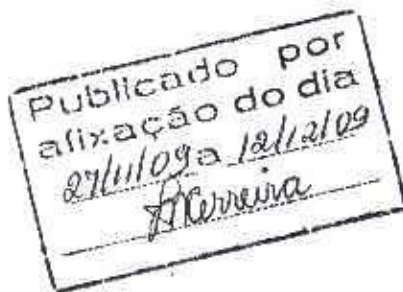 Publicado por
afixação do dia
27/11/09 a 12/12/09